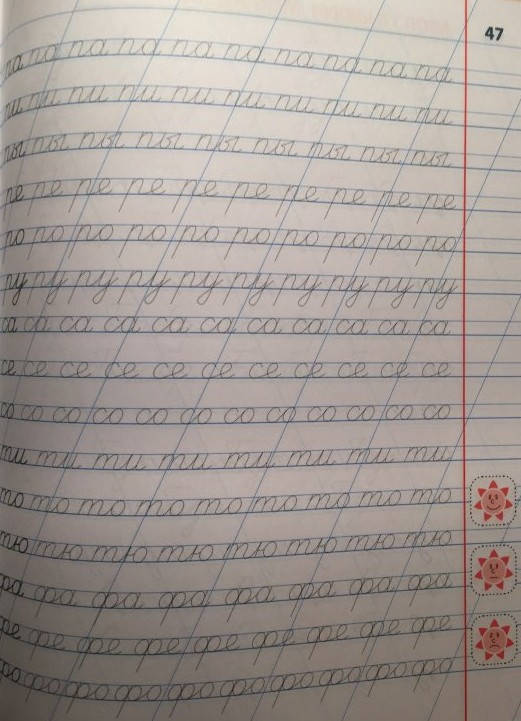 47
па па па па па па па па па па
пи пи пи пи пи пи пи пи пи пи
пы пы пы пы пы пы пы пы пы
пе пе пе пе пе пе пе пе пе пе
по по по по по по по по по по
пу пу пу пу пу пу пу пу пу пу
са са са са са са са са са са са
се се се се се се се се се се се
со со со со со со со со со со со со
ти ти ти ти ти ти ти ти
то то то то то то то то то
тю тю тю тю тю тю тю тю
фа фа фа фа фа фа фа фа
фе фе фе фе фе фе фе фе фе
фо фо фо фо фо фо фо фо фо фо